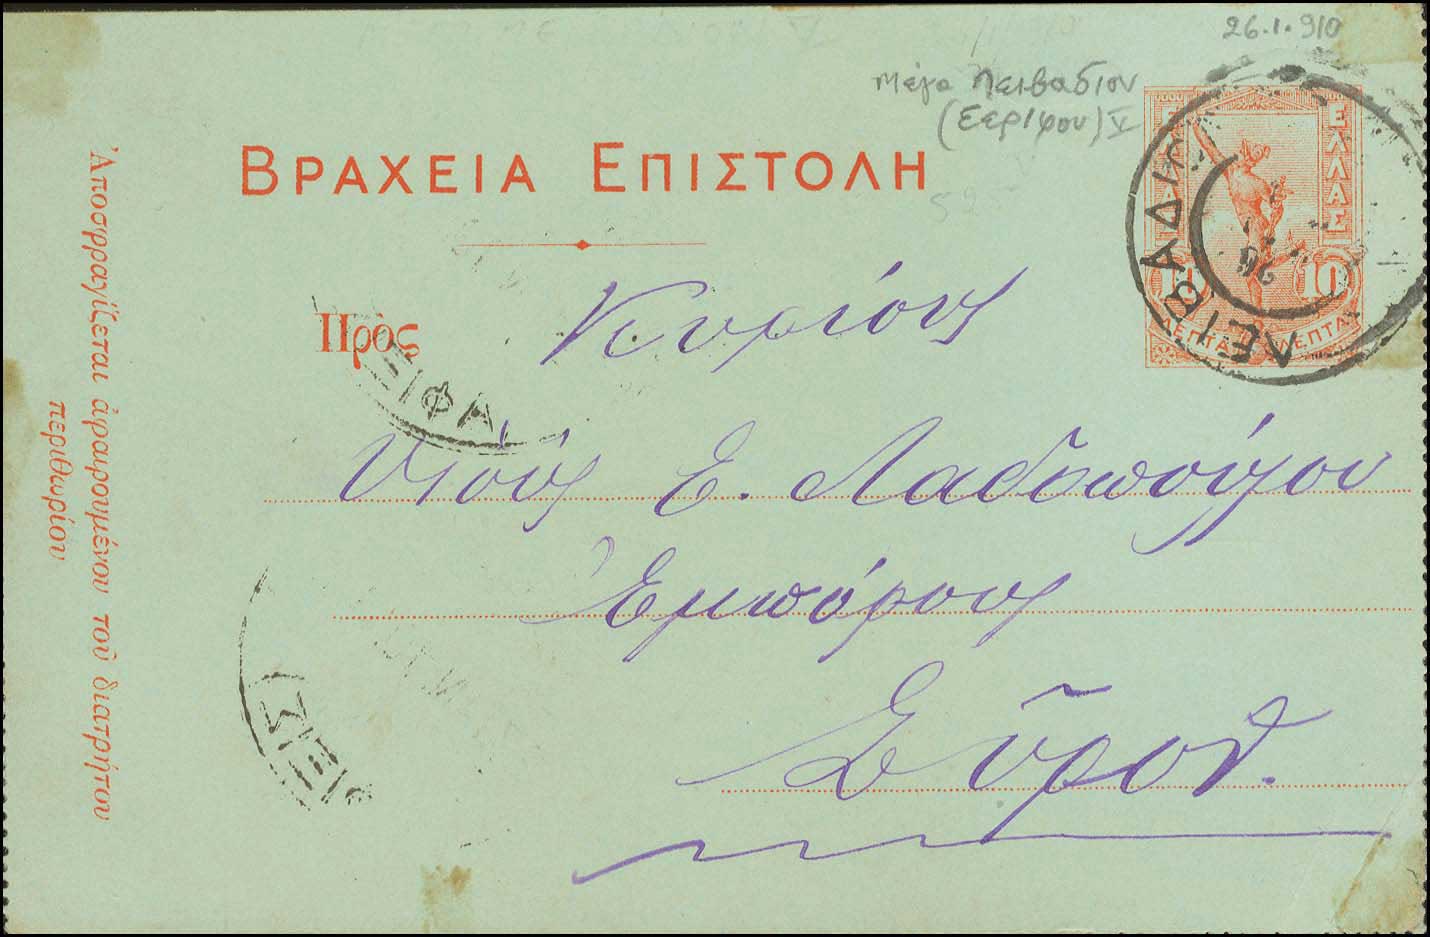 26.1.910
Μέγα Λειβάδιον
(Σερίφου) V
ΒΡΑΧΕΙΑ ΕΠΙΣΤΟΛΗ
ΕΛΛΑΣ
10 10
ΛΕΠΤΑ ΛΕΠΤΑ
ΛΕΙΒΑΔΙ
26
Πρὸς Κυρίους
ΕΙΦΑ
Υἱοὺς Ε. Λαδοπούλου
Ἐμπόρους
Σῦρον.
Ἀποσφραγίζεται ἀφαιρουμένου τοῦ διατρήτου
περιθωρίου